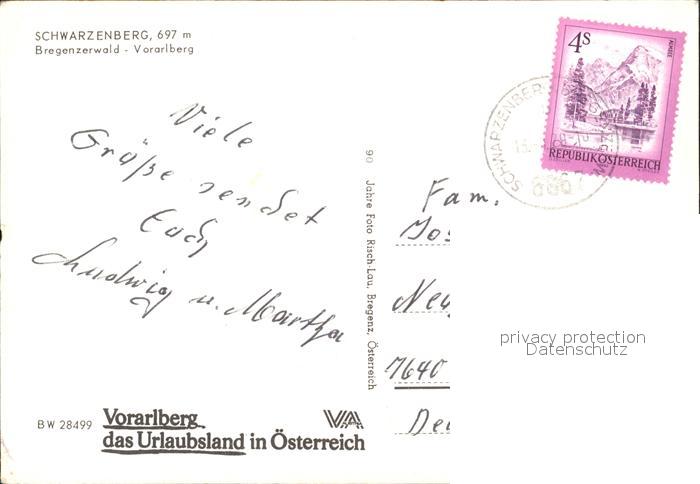 SCHWARZENBERG, 697 m
Bregenzerwald - Vorarlberg
Viele
Grüße sendet
Euch
Ludwig u. Martha
BW 28499
Vorarlberg
das Urlaubsland in Österreich
VA
90 Jahre Foto Risch-Lau, Bregenz, Österreich
4s
ALMSEE
REPUBLIK ÖSTERREICH
SCHWARZENBERG
6867
Fam.
Jos
Neu
7640
Deu
privacy protection
Datenschutz